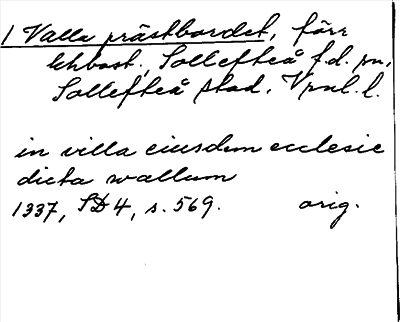 1 Valla prästbordet, förr
khbost., Sollefteå f.d. sn,
Sollefteå stad, Vnl. l.
in villa eiusdem ecclesie
dicta wallum
1337, SD 4, s. 569. orig.